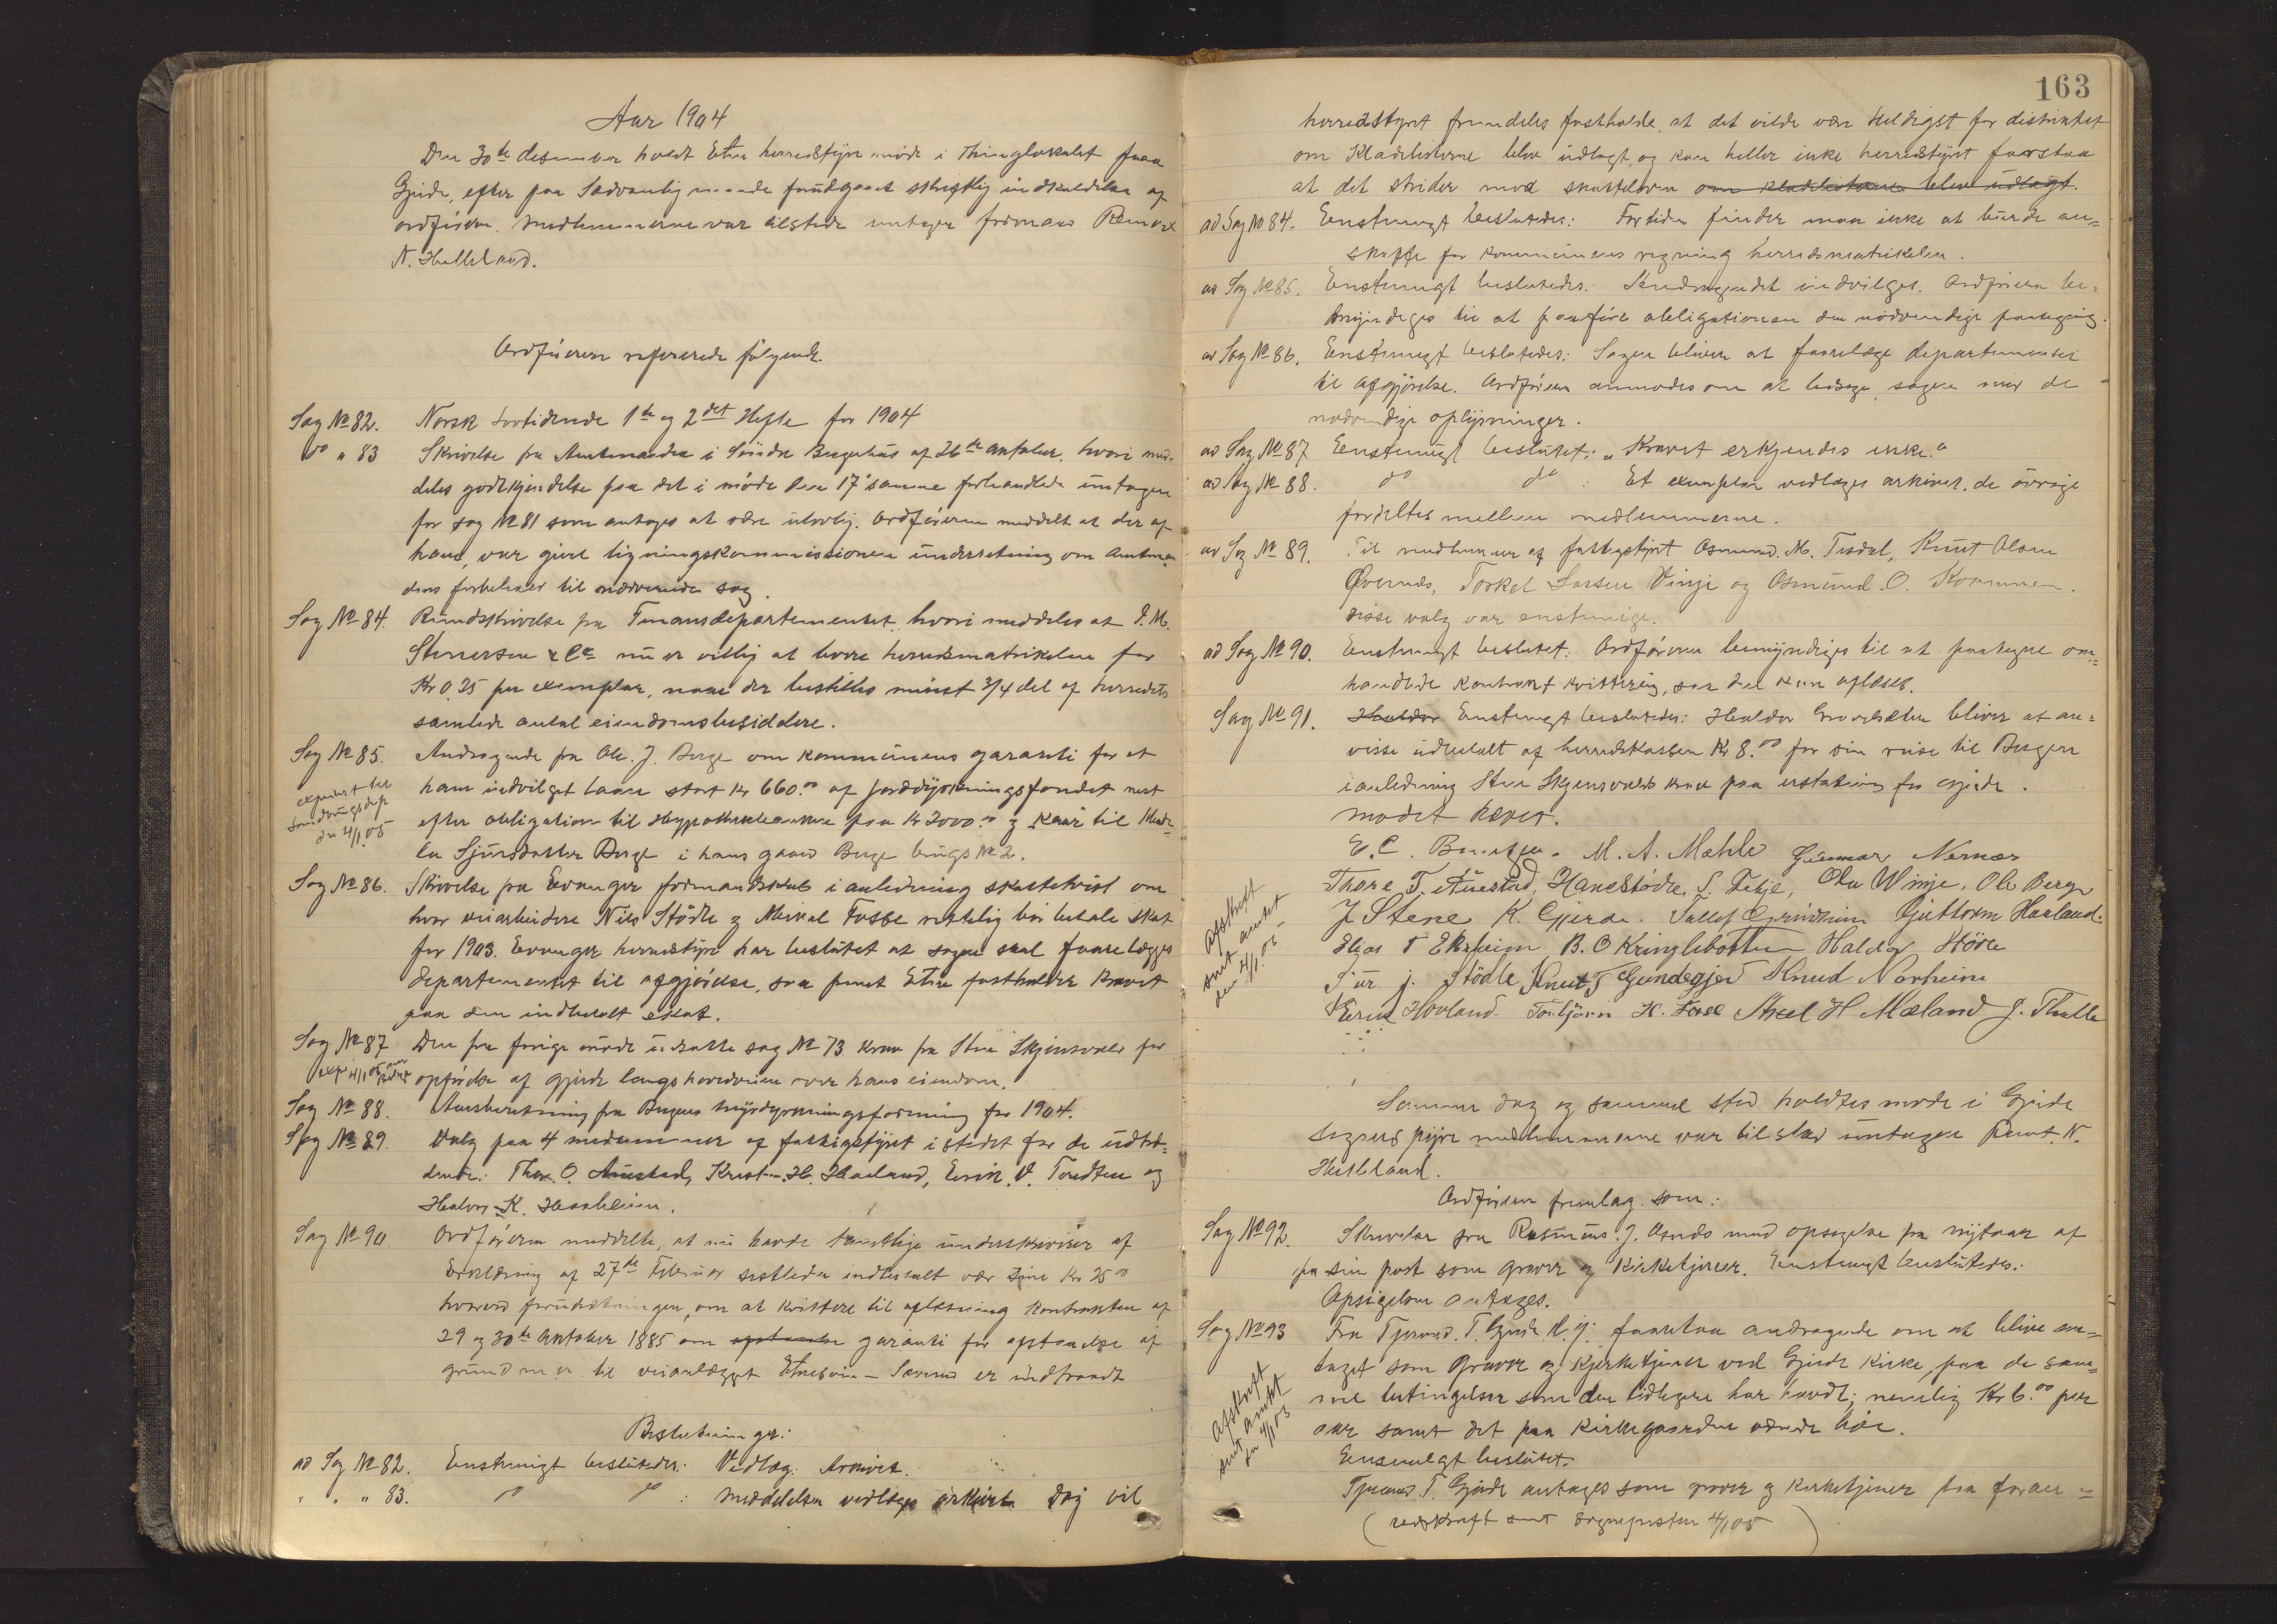 Aar 1904
Den 30te desember holdt Etne herredstyre möde i Thinglokalet paa
Gjerde, efter paa sædvanlig maade forudgaaet skriftlig indkaldelse af
ordföreren. Medlemmerne var tilstede untagen formand
N. Helleland.
Ordföreren refererede fölgende.
Sag No 82. Norsk Lovtidende 1te og 2det Hefte for 1904
do " 83 Skrivelse fra Amtmanden i Söndre Bergenhus af 26de oktober, hvori med-
deles godkjendelse paa det i möde den 17 samme forhandlede untagen
for sag No 81 som antages at være ulovlig. Ordföreren meddelt at der af
ham, var givet ligningskommissionen underretning om Amtman
dens forbehold til nærværende sag.
Sag No 84. Rundskrivelse fra Finansdepartementet, hvori meddeles at I. M.
Stenersen & Co nu er villig at levere herredsmatrikelen for
Kr 0.25 per exemplar, naar der bestilles minst 3/4 del af herredets
samlede antal eiendomsbesiddere.
Sag No 85. Andragende fra Ole J. Berge om kommunens garanti for et
ham indvilget laan stort Kr 660.00 af jorddyrkningsfondet nest
efter obligation til Hypothekbanken paa Kr 2000.00 og Kaar til
Sjursdatter Berge i hans gaard Berge brugs No 2.
expedert til
Landbrugsdep
den 4/1 05
Sag No 86. Skrivelse fra Evanger formandskab i anledning skattetvist om
hvor veiarbeidere Nils Stödle og Mikal Fosse rettelig bör betale skat
for 1903. Evanger herredstyre har besluttet at sagen skal foorelægges
departementet til afgjörelse, saa fremt Etne fastholder kravet
paa den indbetalt skat.
Sag No 87 Den fra forige möde udsatte sag No 73 krav fra Sten Skjensvold for
opförelse af gjerde langs hovedveien over hans eiendom.
Sag No 88. Aarsberetning fra Bergens myrdyrkningsforening for 1904.
Sag No 89. Valg paa 4 medlemmer af fattigstyret i stedet for de udtræ-
dende: Thor O. Austad, Krist. H. Haaland, Eerik V. Tondten og
Halvor K. Hessheim.
Sag No 90. Ordföreren meddelte, at nu havde samtlige underskrivere af
Erklæring af 27de Februar sistleden indbetalt vær sine Kr 25.00
hvorved forudsetningen, om at kvittere til aflæsning kontrakten af
29 og 30te oktober 1885 om garanti for afstaaelse af
grund m.m. til veianlægget Etnesöen - Sævereid er indtraadt
Beslutninger:
ad Sag No 82. Enstemigt besluttedes: Vedlæg. Arkivet.
" " " 83. do do : Meddelelsen vedlægges arkivet. Dog vil
163
herredstyret fremdeles fastholde, at det vilde være heldigst for distriktet
om Kladdelisterne blev udlagt, og kan heller ikke herredstyret foorstaa
at det strider mod skatteloven om kladdelisterne blev udlagt.
ad Sag No 84. Eenstemigt besluttedes: For tiden finder man ikke at burde an=
skaffe for kommunens regning herredsmatrikelen.
ad Sag No 85. Enstemigt besluttedes: Andragendet indvilges. Ordföreren be=
myndeges til at paaföre obligationen den nödvendige paategning.
ad Sag No 86. Enstemigt besluttedes: Sagen bliver at foorelæge departementet
til afgjörelse. Ordföreren anmodes om at ledsage sagen med de
nødvendige oplysninger.
ad Sag No 87 Eenstemigt besluttet: "Kravet erkjendes ikke."
ad Sag No 88. do do : Et exemplar vedlæges arkivet. de övrige
fordeltes mellem medlemmerne.
ad Sag No 89. Til medlemmer af fattigstyret Osmund M. Tesdal, Knut Olsen
Øvernes, Torkel Larsen Vinje og Osmund O. Kommen.
Disse valg var enstemige.
ad Sag No 90. Eenstemigt besluttet: Ordföreren bemyndiges til at paategne om=
handlede Kontrakt kvittering, saa den kan aflæses.
Sag No 91. Haldor Enstemigt besluttedes: Haldor Grovesæter bliver at an=
visse udbetalt af herredskassen Kr 8.00 for sin reise til Bergen
i anledning Sten Skjensvolds krav paa erstatning for gjerde.
mødet hæves.
M. A. Mæhle Gunnar Nernæs
Thore T. Austad, Hans Stödle, S. Fitje, Ola Winje, Ole Berge
J Stene K. Gjerde. Tollef Grindheim Guttorm Haaland.
Elias T Ekrheim B. O Kringlebotten Haldor Höile
Sjur J. Stödle Knut T Grindegjerd Knud Norheim
Eerik Hovland Torbjörn H. Fosse Aksel H. Mæland J. Thulle
Afskrift
sent amtet
den 4/1. 05
Samme dag og samme sted holdtes møde i Gjerde
sognestyre medlemmerne var tilsted untagen N.
Helleland.
Ordföreren fremlag som:
Sag No 92. Skrivelse fra Rasmus J. Osnes med opsigelse fra nytaar af
paa sin post som graver og Kirketjener. Enstemigt besluttedes:
Opsigelsen antages.
Sag No 93 Fra Tjerand T. Gjerde d. y. foorelaa andragende om at blive an=
taget som Graver og Kjerketjener ved Gjerde Kirke, paa de sam=
me betingelser som den tidligere har havdt; nemlig Kr 6.00 per
aar samt det paa Kirkegaarden værende höe.
Eenstemigt besluttet.
Afskrift
sent amtet
den 4/1 05
Tjerand T. Gjerde antages som graver og Kirketjener paa foran=
( udskrift sent Sognepresten 4/1 05 )